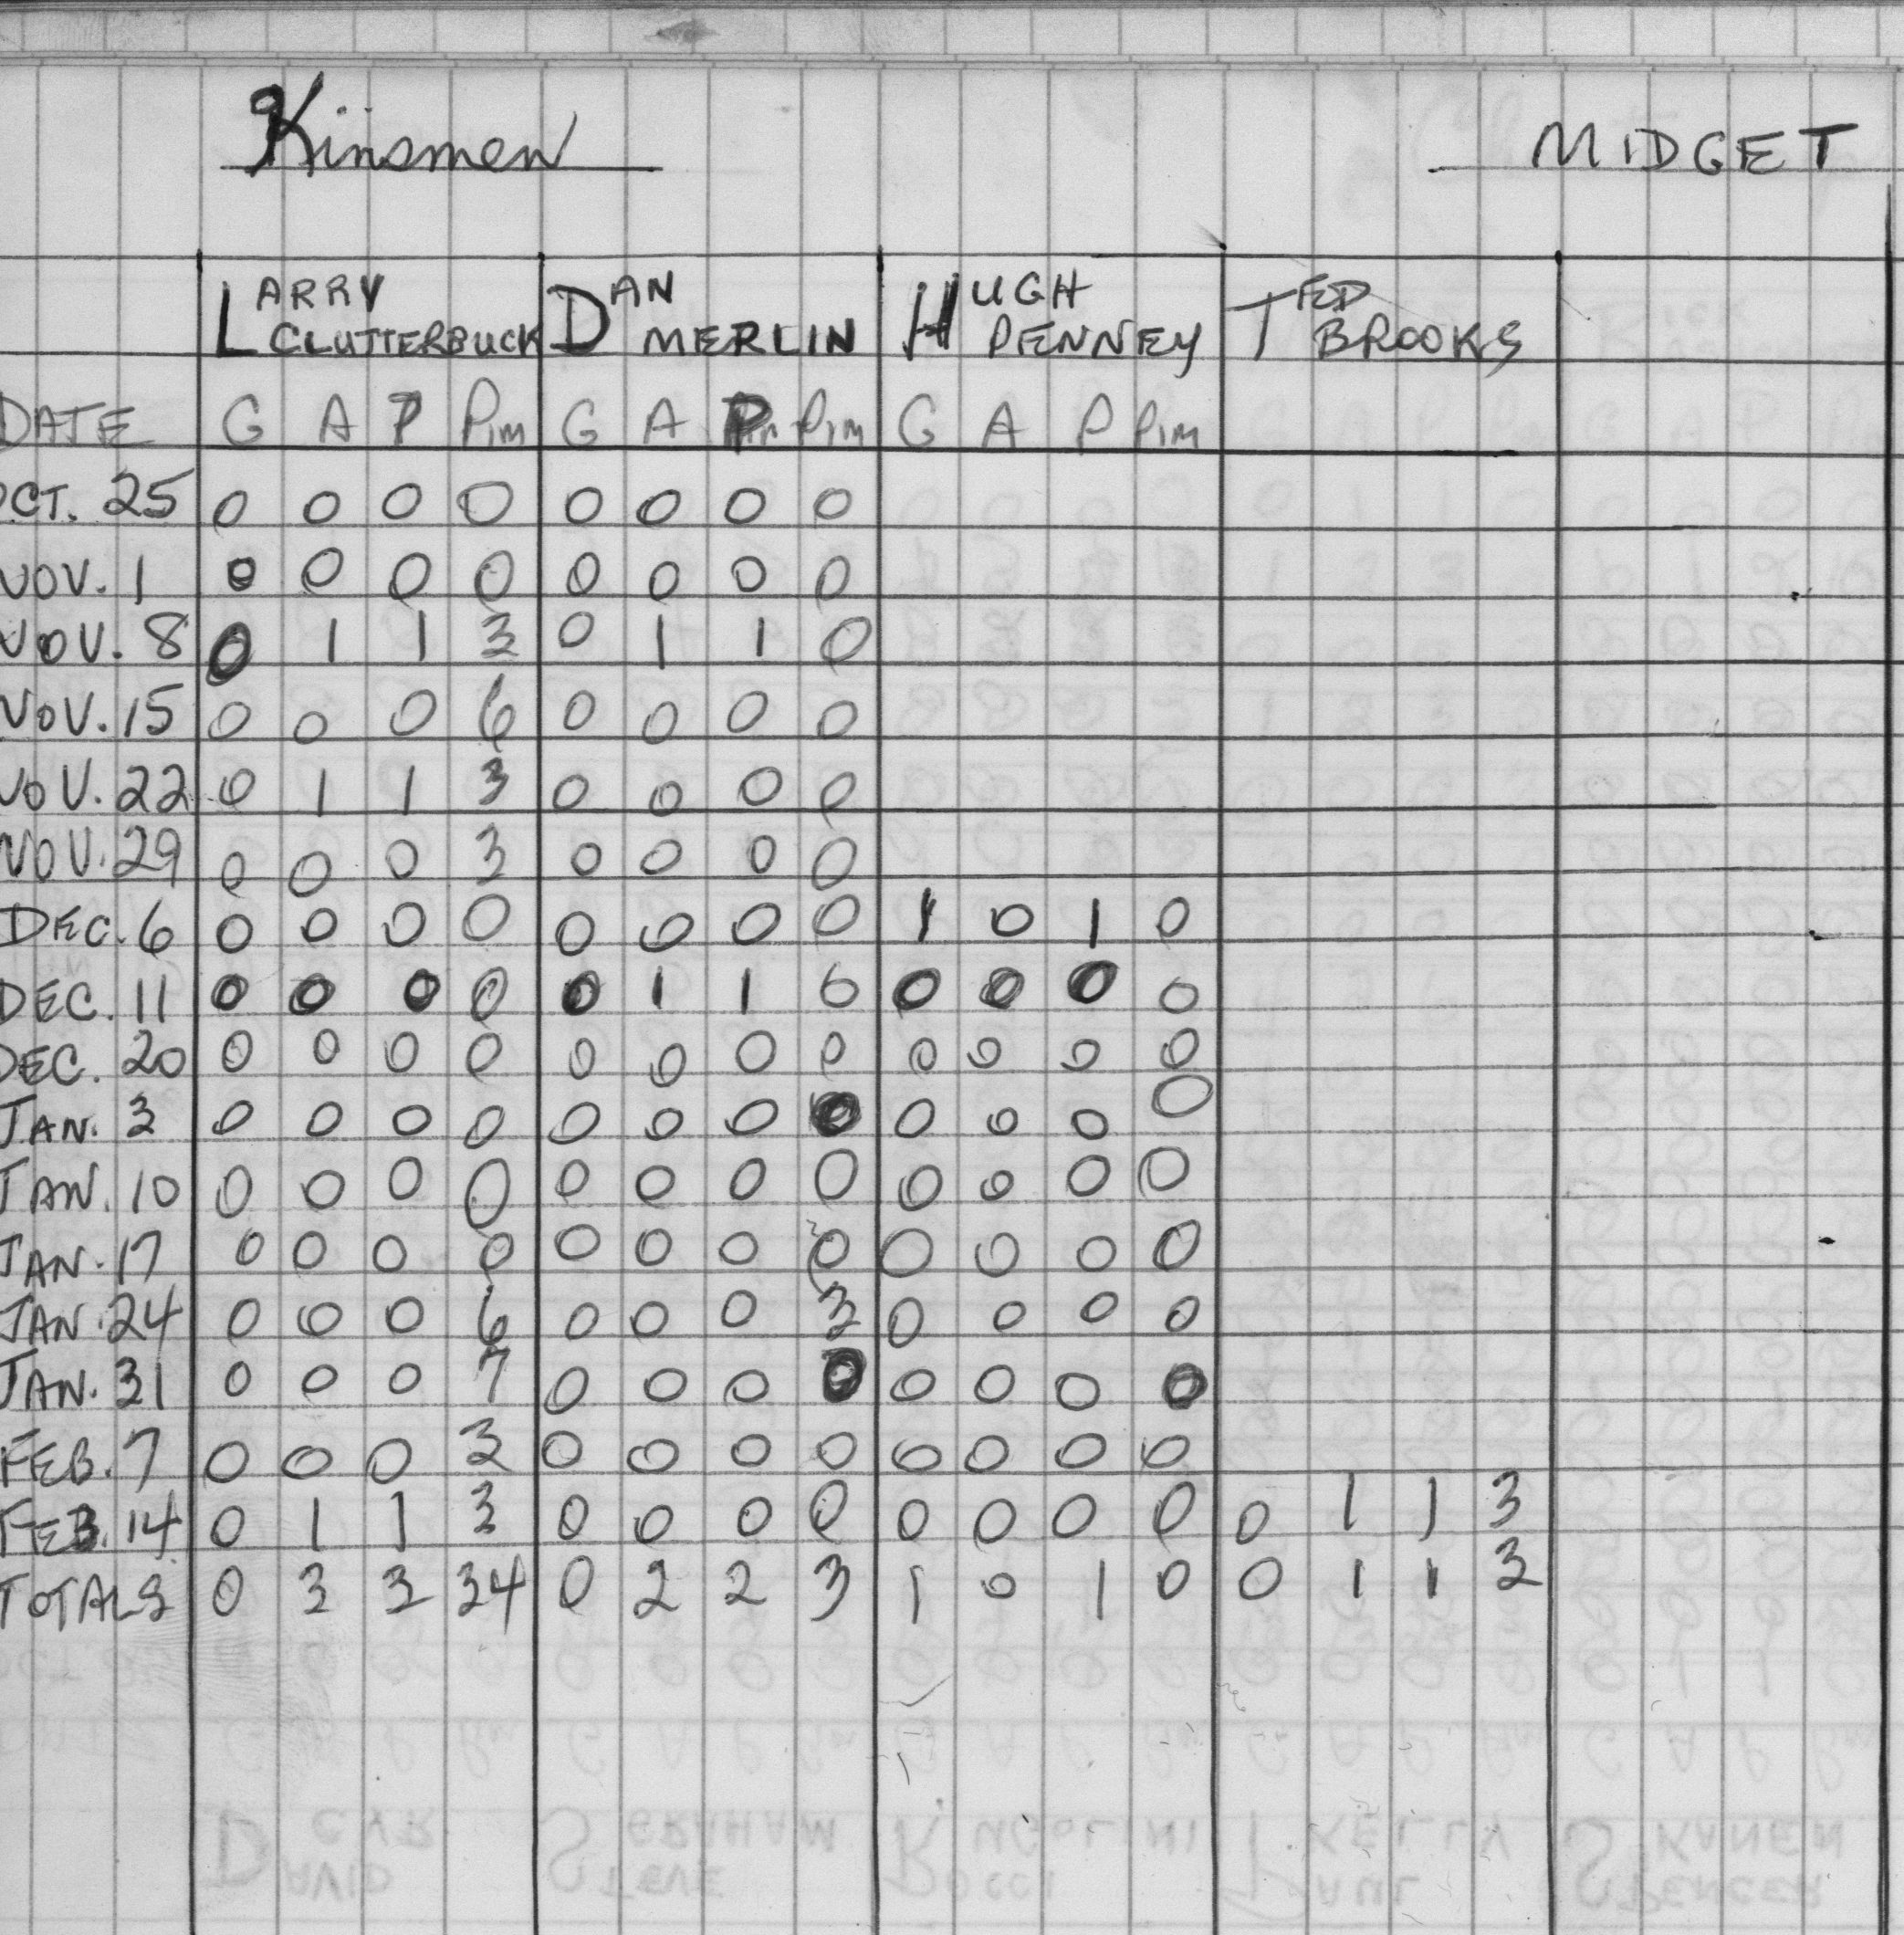 Kinsmen MIDGET
LARRY DAN HUGH TED
CLUTTERBUCK MERLIN PENNEY BROOKS
DATE G A P Pim G A P Pim G A P Pim
OCT. 25 0 0 0 0 0 0 0 0
NOV. 1 0 0 0 0 0 0 0 0
NOV. 8 0 1 1 3 0 1 1 0
NOV. 15 0 0 0 6 0 0 0 0
NOV. 22 0 1 1 3 0 0 0 0
NOV. 29 0 0 0 3 0 0 0 0
DEC. 6 0 0 0 0 0 0 0 0 1 0 1 0
DEC. 11 0 0 0 0 0 1 1 0 0 0 0 0
DEC. 20 0 0 0 0 0 0 0 0 0 0 0 0
JAN. 3 0 0 0 0 0 0 0 0 0 0 0 0
JAN. 10 0 0 0 0 0 0 0 0 0 0 0 0
JAN. 17 0 0 0 0 0 0 0 0 0 0 0 0
JAN. 24 0 0 0 6 0 0 0 3 0 0 0 0
JAN. 31 0 0 0 7 0 0 0 0 0 0 0 0
FEB. 7 0 0 0 3 0 0 0 0 0 0 0 0
FEB. 14 0 1 1 3 0 0 0 0 0 0 0 0 0 1 1 3
TOTALS 0 3 3 34 0 2 2 3 1 0 1 0 0 1 1 3